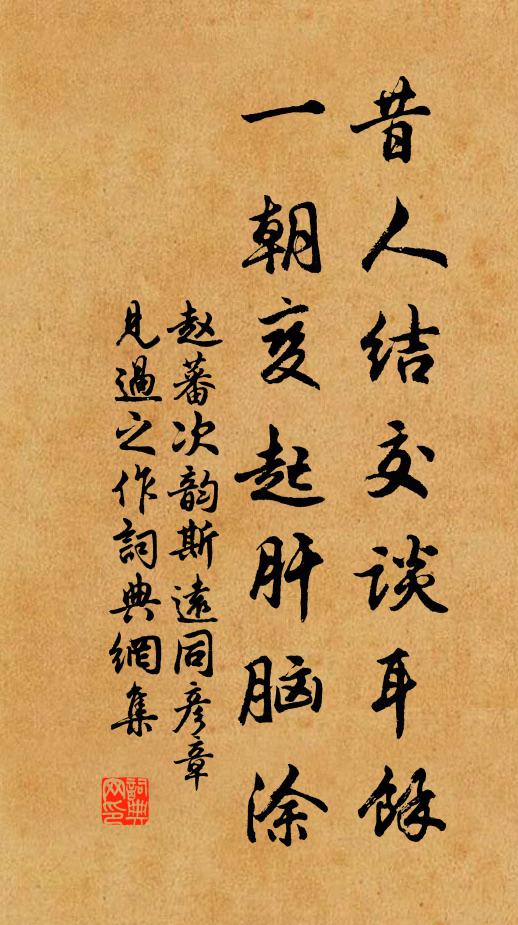 昔人结交谈耳餘
一朝变起肝脑涂
赵蕃次韵斯遠同彦章
見過之作詞典網集
詞典网印